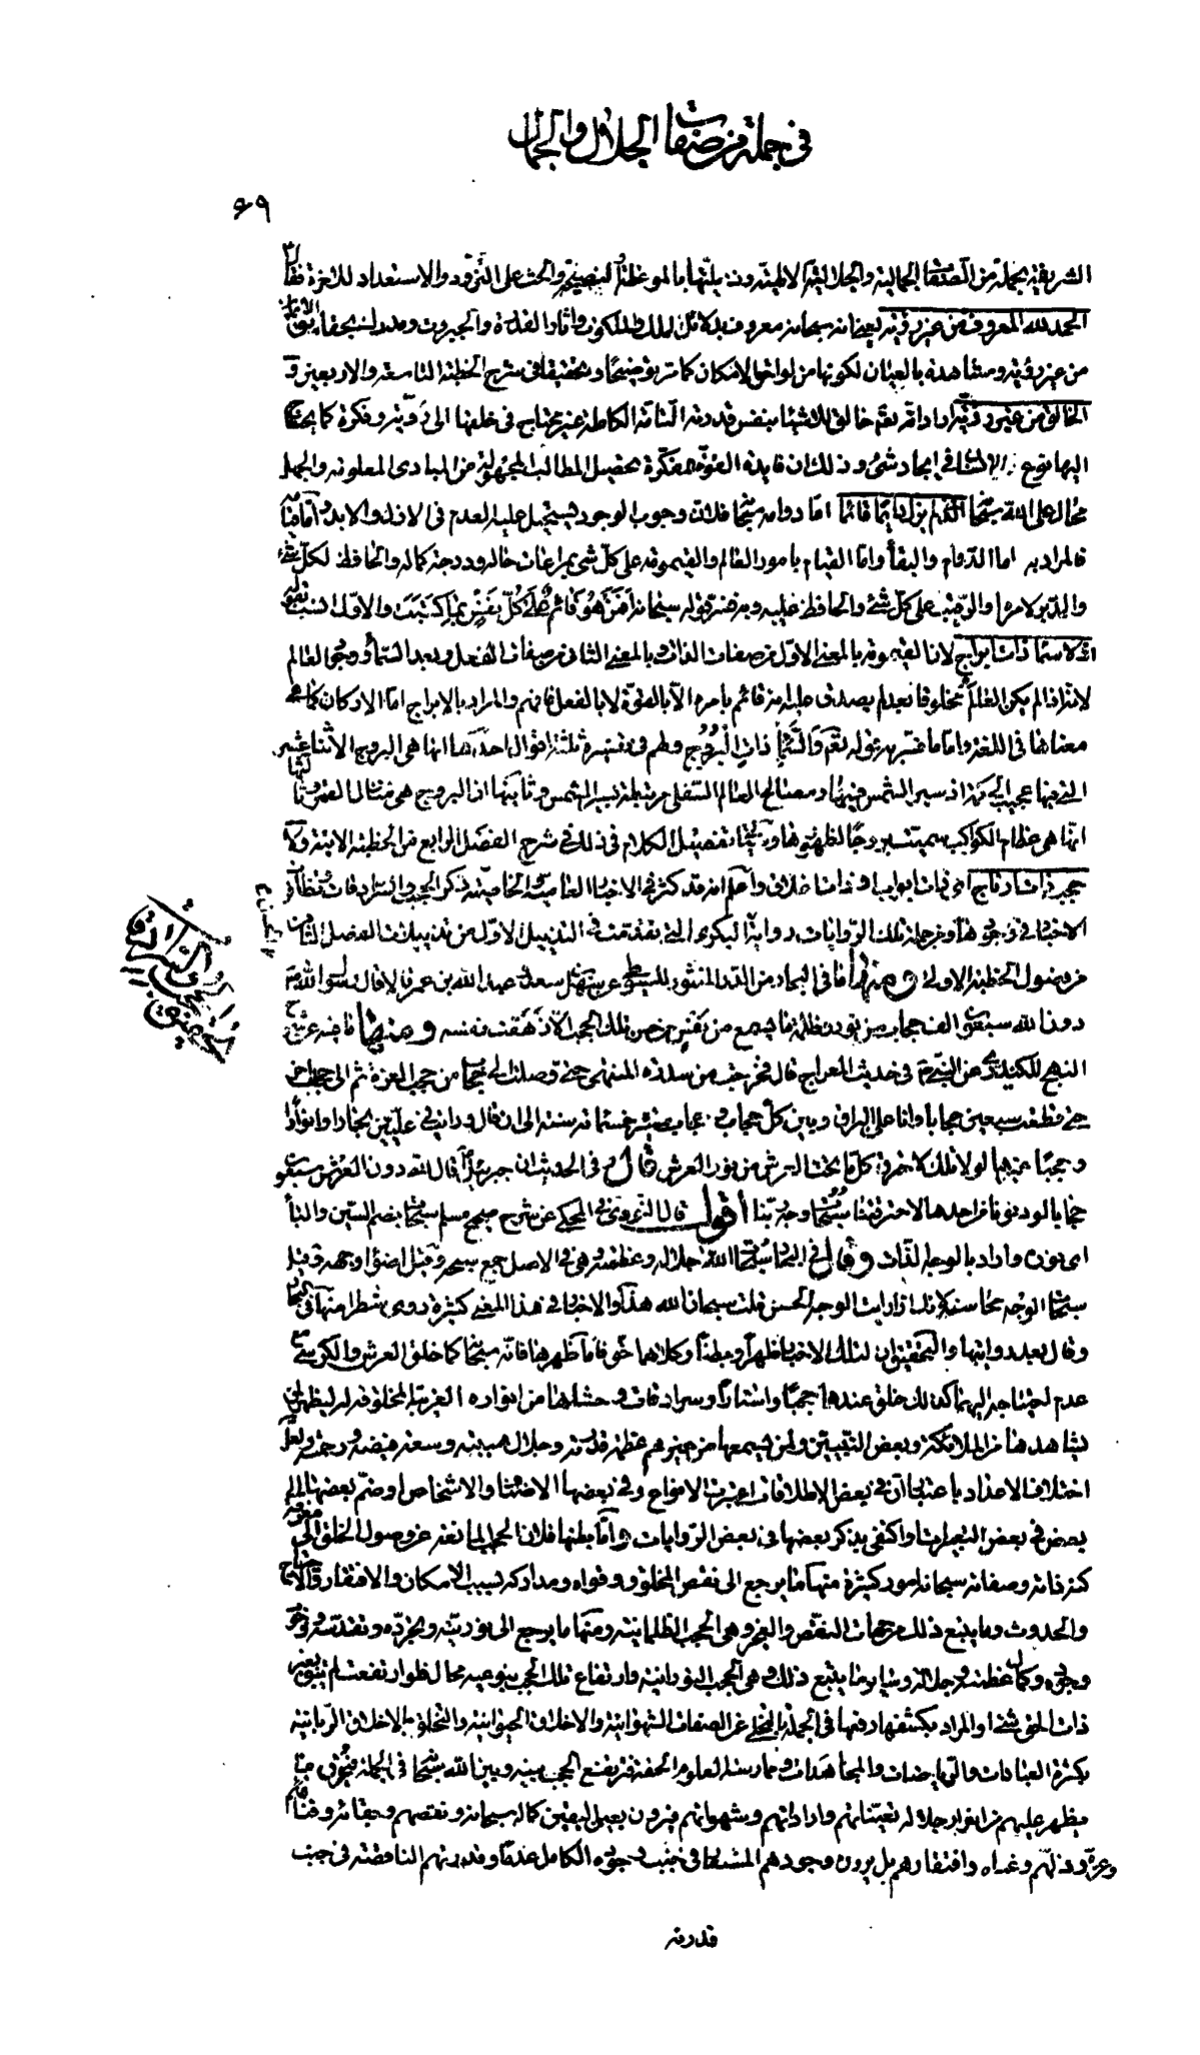 في جملة من صفات الجلال والجمال
٦٩
الشريفة بجملة من الصفات الجمالية والجلالية الالهية ونذيلها بالموعظة النصيحة والحث على التزود والاستعداد للآخرة فقال
الحمد لله المعروف من غير رؤية يعني انه سبحانه معروف بدلائل الملك والملكوت واثار القدرة والجبروت ومدرك بحقائق الايمان
من غير رؤية ومشاهدة بالعيان لكونها من لواحق الامكان كما مر توضيحا وتحقيقا في شرح الخطبة التاسعة والاربعين و
الخالق من غير روية اراد انه تعالى خالق للاشياء بنفس قدرته التامة الكاملة غير محتاج في خلقها الى روية وفكرة كما يحتاج
اليها نوع الانسان في ايجاد شيء وذلك ان فايدة القوة المفكرة تحصيل المطالب المجهولة من المبادى المعلومة والجهل
محال على الله سبحانه الذي لم يزل دائما قائما اما دوامه سبحانه فلان وجوب الوجود يستحيل عليه العدم في الازل والابد واما قيامه
فالمراد به اما الدوام والبقاء واما القيام بامور العالم والقيمومة على كل شيء بمراعات حاله ودرجة كماله والحافظ لكل شيء
والمدبر لامره والرقيب على كل شيء والحافظ عليه وبه فسر قوله سبحانه افمن هو قائم على كل نفس بما كسبت والاول انسب بقوله
اذ لا سماء ذات ابراج لان القيمومة بالمعنى الاول من صفات الذات وبالمعنى الثاني من صفات الفعل وبعد السماء ووجود العالم
لانه اذا لم يكن العالم مخلوقا بعد لم يصدق عليه انه قائم بامره الا بالقوة لا بالفعل فافهم والمراد بالابراج اما الاركان كما هو
معناها في اللغة واما ما فسر به قوله تعالى والسماء ذات البروج ولهم في تفسيره ثلثة اقوال احدها انها هي البروج الاثنا عشر
التي فيها عجيب الحكمة اذ سير الشمس فيها ومصالح العالم السفلي مرتبطة بسير الشمس وثانيها ان البروج هي منازل القمر وثالثها
انها هي عظام الكواكب سميت بروجا لظهورها وياتي تفصيل الكلام في ذلك في شرح الفصل الرابع من الخطبة الاتية ولا
حجب ذات ارتاج اي ذات ابواب وذات اغلاق واعلم انه قد كثر في الاخبار العامية والخاصية ذكر الحجب والسرادقات وتظافر
الاخبار في وجودها ومن جملة تلك الروايات رواية البكري التي تقدمت في التذييل الاول من تذييلات الفصل الثامن
من فصول الخطبة الاولى ومنها ما في البحار من الدر المنثور للسيوطي عن سهل بن سعد وعبد الله بن عمر قالا قال رسول الله ص
دون الله سبعون الف حجاب من نور وظلمة ما يسمع من نفس من حس تلك الحجب الا زهقت نفسه ومنها ما فيه عن شرح
النهج للكيدري عن النبي ص في حديث المعراج قال فخرجت من سدرة المنتهى حتى وصلت الى حجاب من حجب العزة ثم الى حجاب اخر
حتى قطعت سبعين حجابا وانا على البراق وبين كل حجاب وحجاب مسيرة خمسمائة سنة الى ان قال ورايت في عليين بحارا وانوارا
وحجبا غيرها لولا تلك لاحترق كل ما تحت العرش من نور العرش قال وفي الحديث ان جبرئيل قال لله دون العرش سبعون
حجابا لو دنونا من احدها لاحرقتنا سبحات وجه ربنا اقول قال النووي في المحكي عن شرح صحيح مسلم سبحات بضم السين والباء
اي نوره واراد بالوجه الذات وقال في البحار سبحات الله جلاله وعظمته وهي في الاصل جمع سبحة وقيل اضواء وجهه وقيل
سبحات الوجه محاسنه لانك اذا رايت الوجه الحسن قلت سبحان الله هذا والاخبار في هذا المعنى كثيرة روى شطرا منها في البحار
وقال بعد روايتها والتحقيق ان لتلك الاخبار ظهرا وبطنا وكلاهما حق فاما ظهرها فانه سبحانه كما خلق العرش والكرسي مع
عدم احتياجه اليهما كذلك خلق عندهما حجبا واستارا وسرادقات وحشاها من انواره الغريبة المخلوقة له ليظهر لمن
يشاهدها من الملائكة وبعض النبيين ولمن يسمعها من غيرهم عظمة قدرته وجلال هيبته وسعة فيضه ورحمته ولعل
اختلاف الاعداد باعتبار ان في بعض الاطلاقات اعتبرت الانواع وفي بعضها الاصناف والاشخاص او ضم بعضها الى
بعض في بعض التعبيرات واكتفى بذكر بعضها في بعض الروايات واما بطنها فلان الحجب المانعة عن وصول الخلق الى معرفة
كنه ذاته وصفاته سبحانه امور كثيرة منها ما يرجع الى نقص المخلوق وقواه ومداركه بسبب الامكان والافتقار والاحتياج
والحدوث وما يتبع ذلك من جهات النقص والعجز وهي الحجب الظلمانية ومنها ما يرجع الى نوريته وتجرده وتقدسه ووجوب
وجوده وكمال عظمته وجلاله وساير ما يتبع ذلك وهي الحجب النورانية وارتفاع تلك الحجب بنوعيه محال فلو ارتفعت لم يبق بغير
ذات الحق شيء او المراد بكشفها رفعها في الجملة بالتخلي عن الصفات الشهوانية والاخلاق الحيوانية والتخلق بالاخلاق الربانية
بكثرة العبادات والرياضات والمجاهدات وممارسة العلوم الحقة فترتفع الحجب بينه وبين الله سبحانه في الجملة فيحرق ما
يظهر عليهم من انوار جلاله تعيناتهم واراداتهم وشهواتهم فيرون بعين اليقين كماله سبحانه ونقصهم وبقائه وفنائهم
وعزه وذلهم وغناه وافتقارهم بل يرون وجودهم المستعار في جنب وجوده الكامل عدما وقدرتهم الناقصة في جنب
قدرته